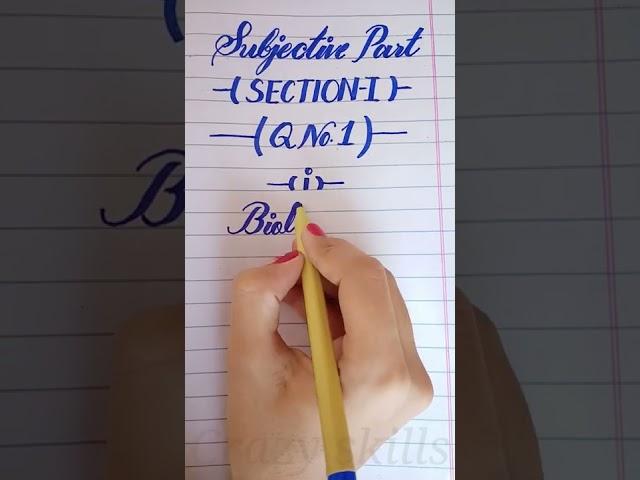 Subjective Part
(SECTION-I)
(Q No. 1)
(i)
Biol
Crazy skills